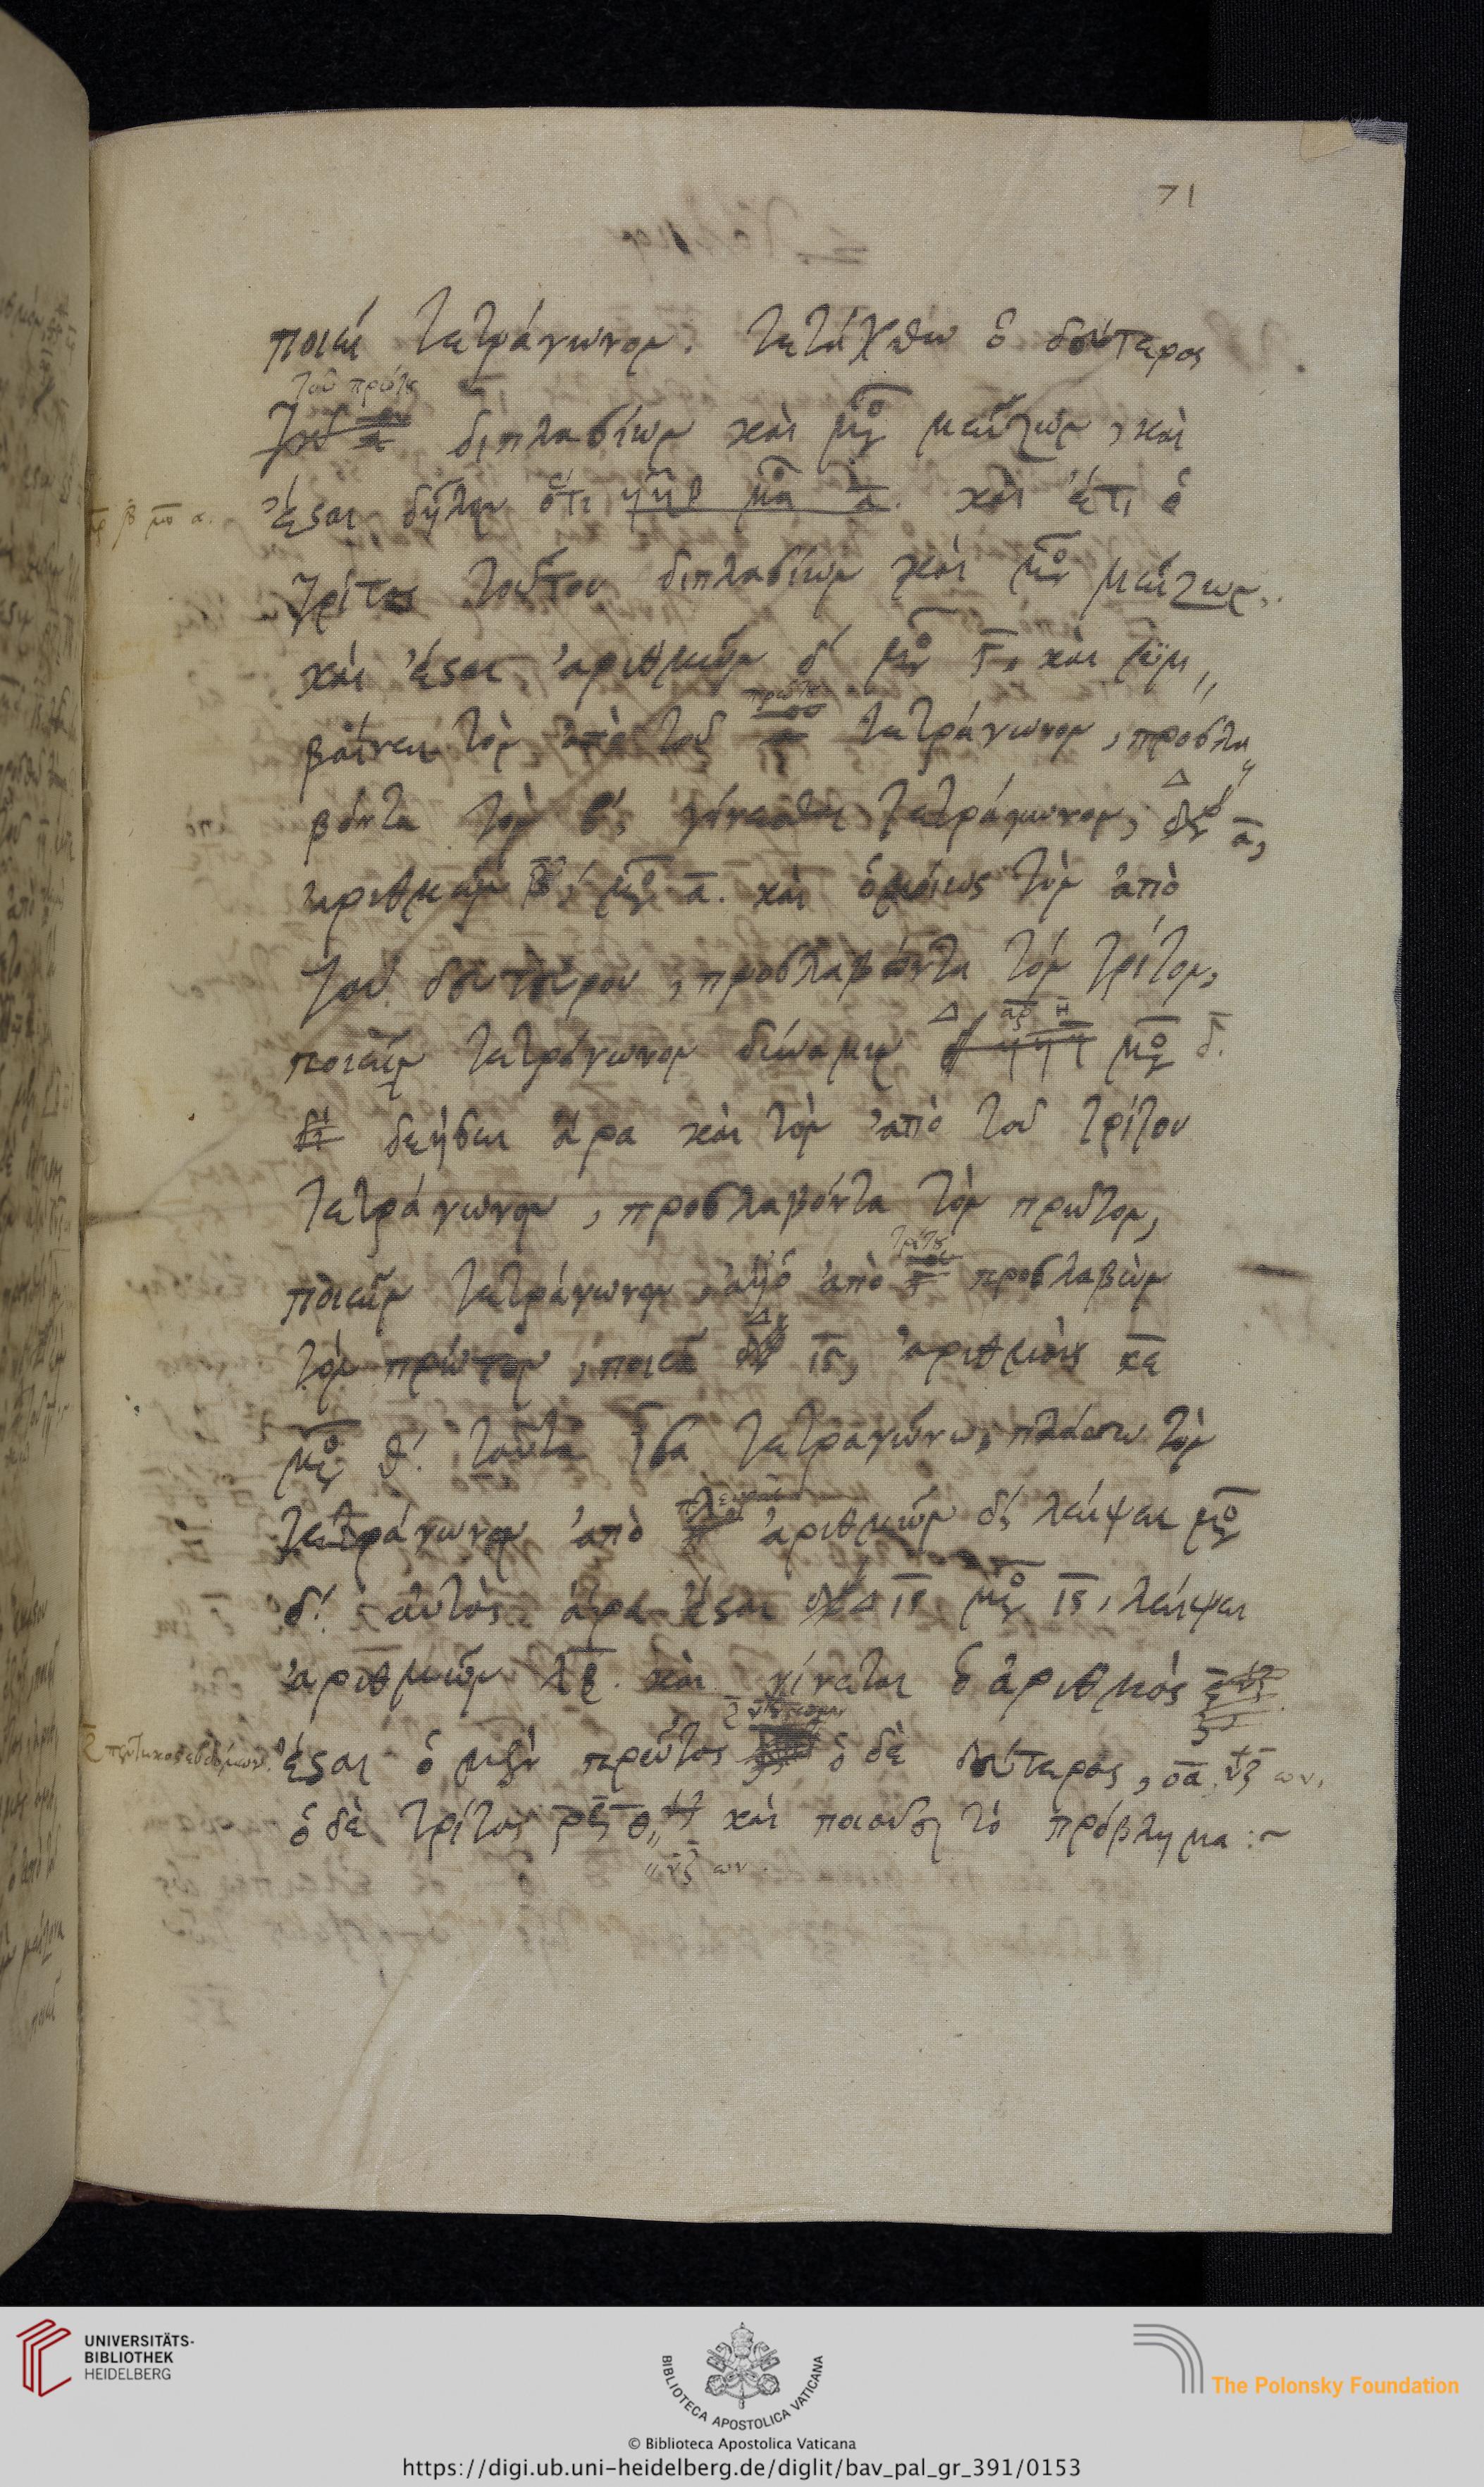 71
ποιεῖ τετράγωνον. τετάχθω ὁ δεύτερος
τοῦ πρώτου
διπλασίων καὶ μο̅ μείζων, καὶ
ἔσται δηλον ὅτι ϟϟ β μο̅ α̅. καὶ ἔτι ὁ
αρ̅ β̅ μο̅ α.
τρίτος τούτου διπλασίων καὶ μο̅ μείζων.
καὶ ἔσται ἀριθμῶν δ μο̅ γ̅, καὶ συμ
πρώτου
βαίνει τὸν ἀπὸ τοῦ τετράγωνον, προσλα
βόντα τὸν β, γίνεσθαι τετράγωνον, Δ α̅,
ἀριθμῶν β̅, μο̅ α̅. καὶ ὁμοίως τὸν ἀπὸ
τοῦ δευτέρου, προσλαβόντα τὸν τρίτον,
ποιεῖν τετράγωνον δύναμιν Δ αρ̅ η̅ μο̅ δ̅.
δεήσει ἄρα καὶ τὸν ἀπὸ τοῦ τρίτου
τετράγωνον, προσλαβόντα τὸν πρῶτον,
τρίτου
ποιεῖν τετράγωνον, ἀλλ' ὁ ἀπὸ προσλαβὼν
τὸν πρῶτον, ποιεῖ Δ ις̅, ἀριθμοὺς κε̅
μο̅ θ. ταῦτα ἴσα τετραγώνῳ, πλάσσω τὸν
πλευρᾶς
τετράγωνον ἀπὸ ἀριθμῶν δ λείψει μο̅
δ. αὐτὸς ἄρα ἔσται Δ ις̅ μο̅ ις̅, λείψει
ἀριθμῶν λβ̅. καὶ γίνεται ὁ ἀριθμὸς ζ̅
ζ̅ πεντηκοστεβδόμων. ἔσται ὁ μὲν πρῶτος ὁ δὲ δεύτερος, οα̅ νζ̅ ων,
ὁ δὲ τρίτος ρϟθ̅ καὶ ποιοῦσι τὸ πρόβλημα :~
νζ̅ ων.
UNIVERSITÄTS-
BIBLIOTHEK
HEIDELBERG
BIBLIOTECA APOSTOLICA VATICANA
The Polonsky Foundation
© Biblioteca Apostolica Vaticana
https://digi.ub.uni-heidelberg.de/diglit/bav_pal_gr_391/0153